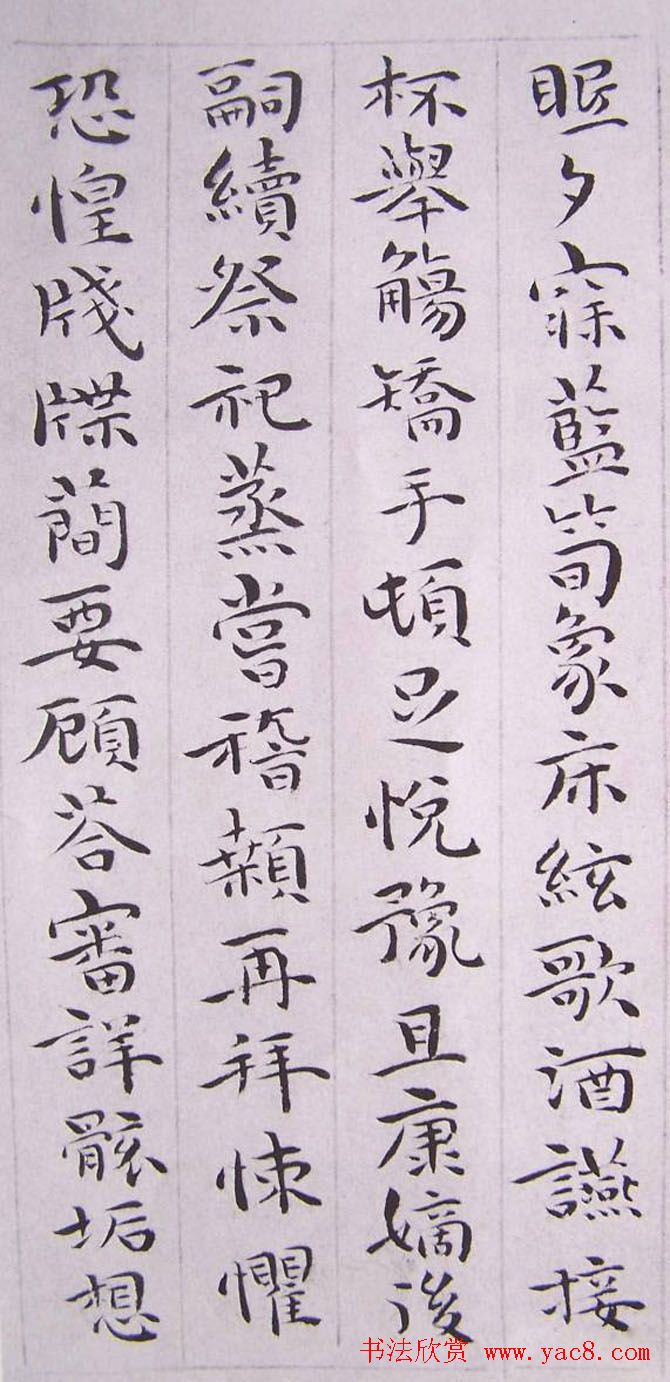 眠夕寐藍笥象床絃歌酒讌接
杯舉觴矯手頓足悅豫且康嫡後
嗣續祭祀蒸嘗稽顙再拜悚懼
恐惶牋牒蕳要顧荅審詳骸垢想
书法欣赏 www.yac8.com